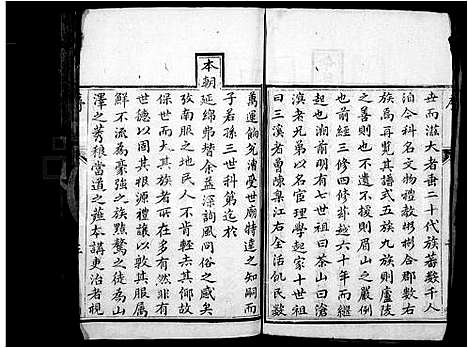 世而滋大者垂二十代族蕃数千人
洎今科名文物禮教彬彬合郡數右
族焉再覧其譜式五族九族則廬陵
之善則也不遺不援則眉山之嚴例
也前經三修四修葢越六十年而繼
起也湘前明有七世祖曰茶山曰澬
濵老兄弟以名宦理學起家十世祖
曰三溪者曹陳槩江右全活飢民數
萬運餉充漕受世廟特達之知嗣而
子若孫三世科第迄於
本朝延綿弗替余益深詢風問俗之感矣
攷南服之地民人不肯輕去其鄉故
保世而大其族者所在多有然非有
世德以固其根源禮讓以敦其服屬
鮮不流為豪強之族黠騖之徒為山
澤之莠稂當道之藴本講吏治者視